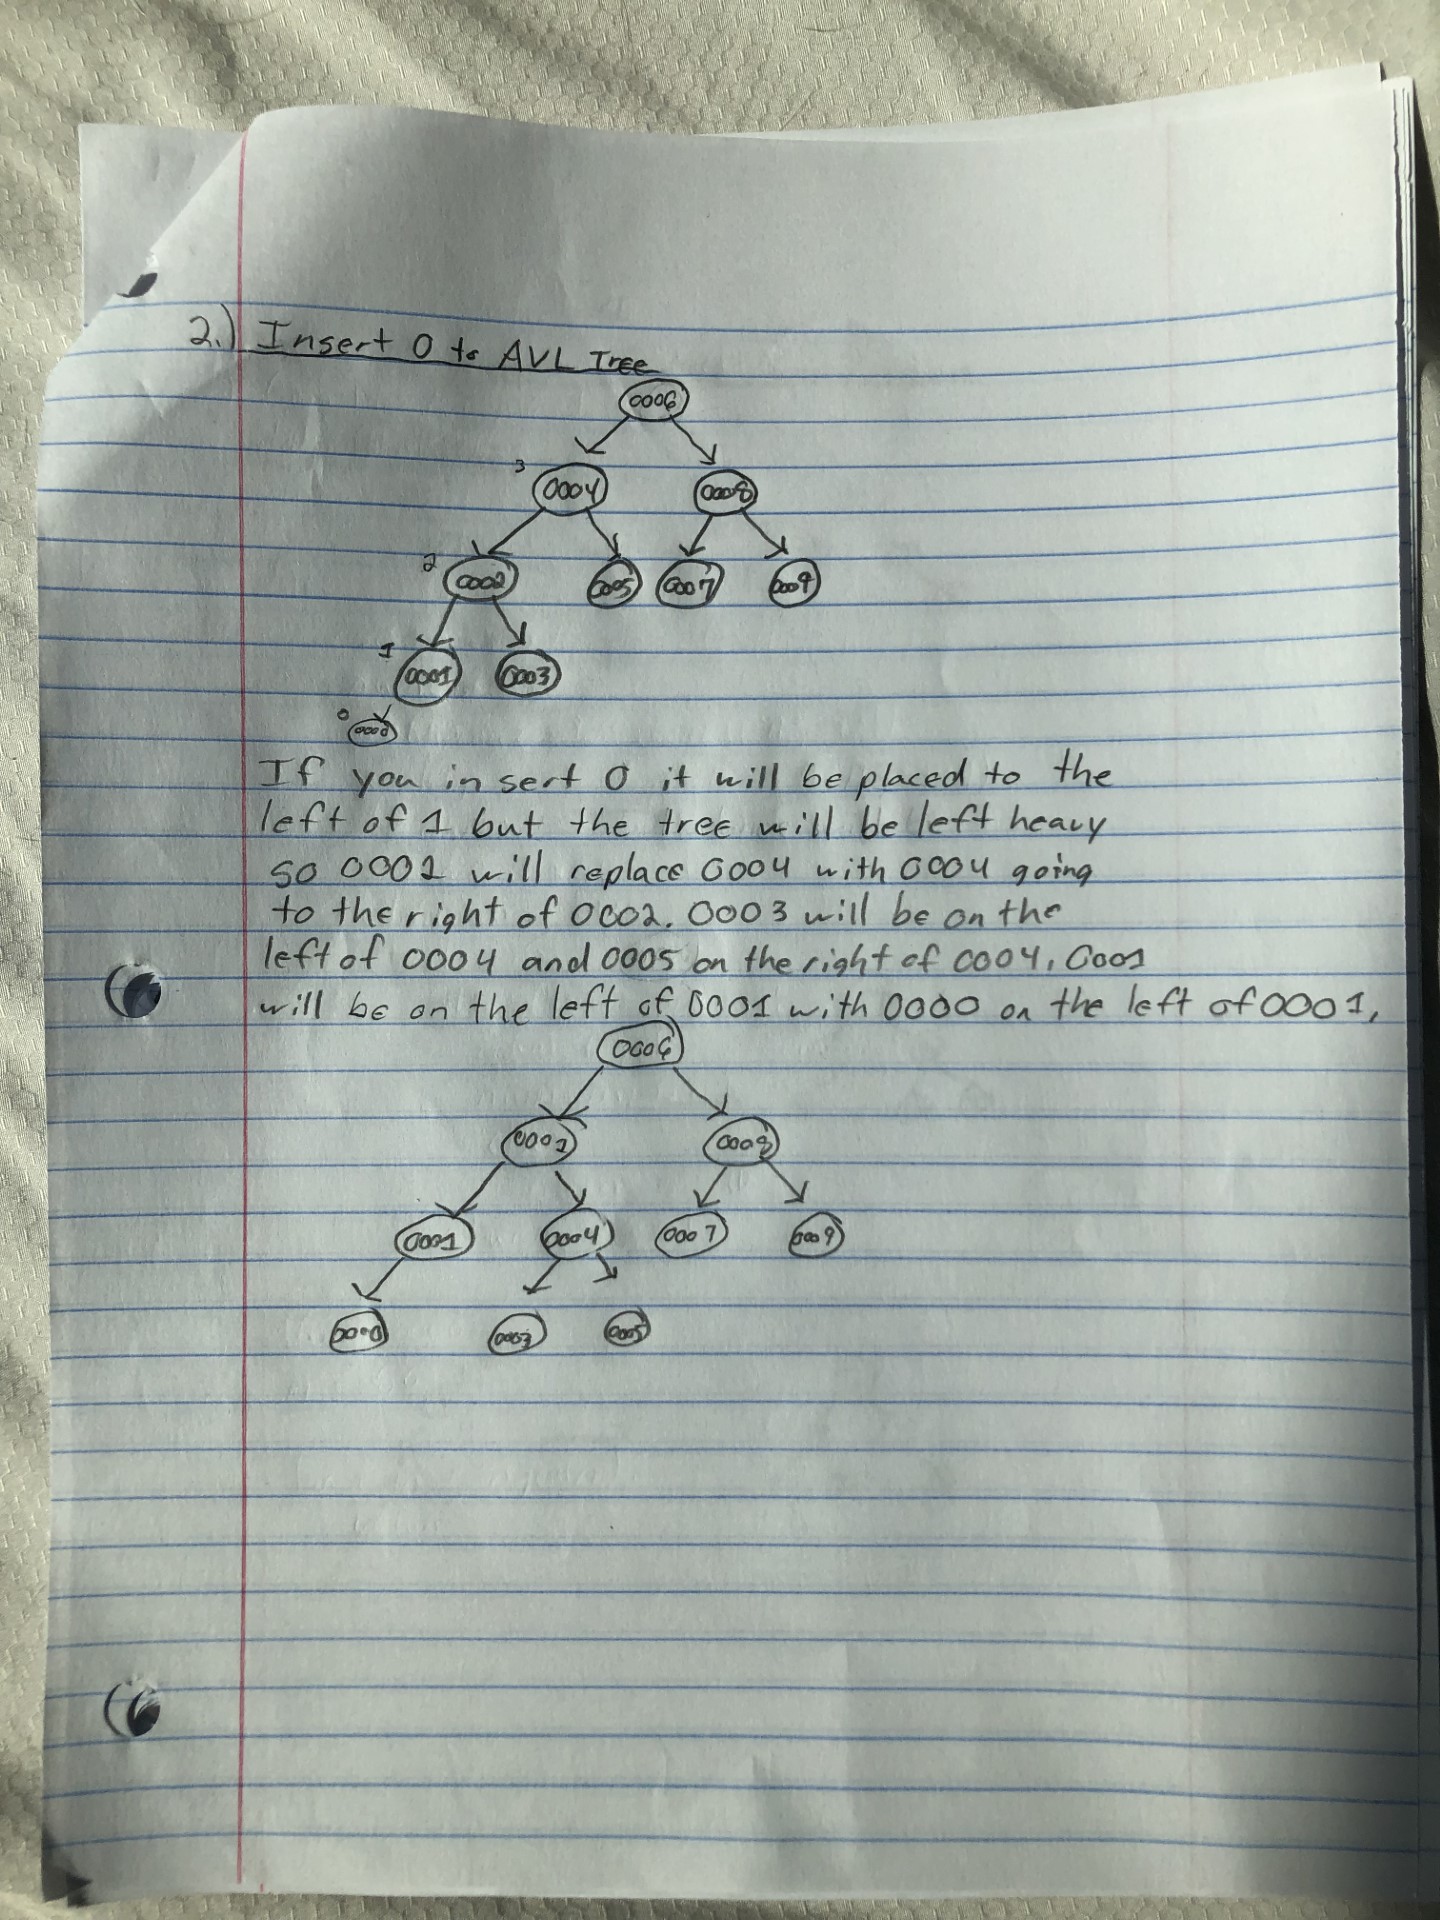 2.) Insert 0 to AVL Tree
0006
3 0004 0008
2 0002 0005 0007 0009
1 0001 0003
0 0000
If you insert 0 it will be placed to the
left of 1 but the tree will be left heavy
so 0002 will replace 0004 with 0004 going
to the right of 0002. 0003 will be on the
left of 0004 and 0005 on the right of 0004. 0001
will be on the left of 0001 with 0000 on the left of 0001.
0006
0002 0008
0001 0004 0007 0009
0000 0003 0005